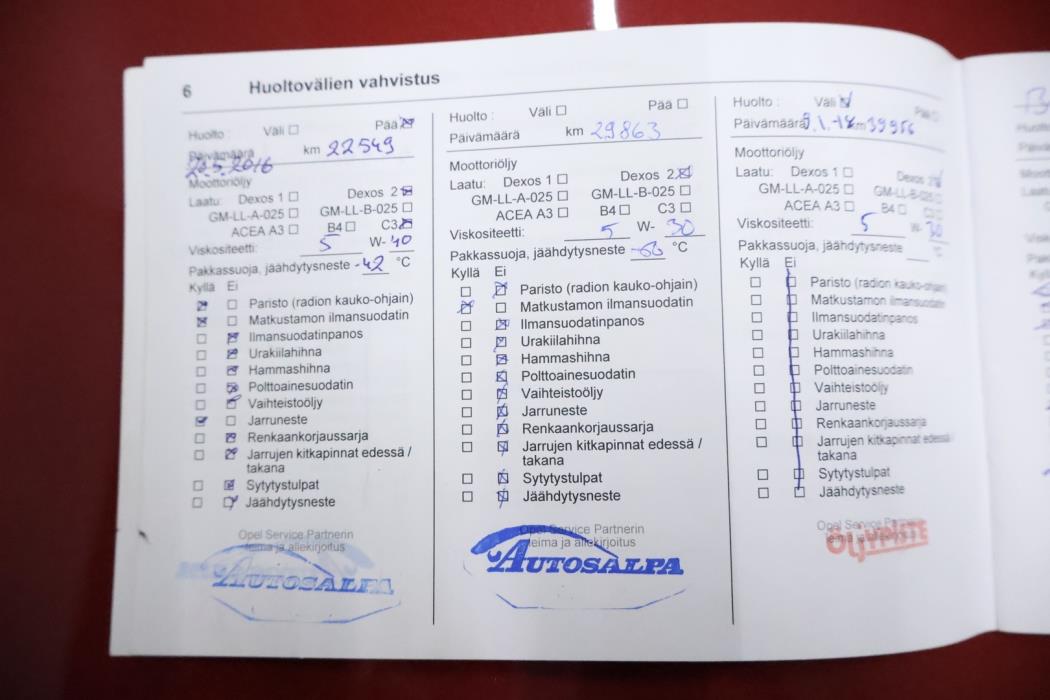 6 Huoltovälien vahvistus
Huolto : Väli ☐ Pää ☒
Päivämäärä km 22549
23.5.2016
Moottoriöljy
Laatu: Dexos 1 ☐ Dexos 2 ☒
GM-LL-A-025 ☐ GM-LL-B-025 ☐
ACEA A3 ☐ B4 ☐ C3 ☒
Viskositeetti: 5 W- 40
Pakkassuoja, jäähdytysneste -42 °C
Kyllä Ei
☒ ☐ Paristo (radion kauko-ohjain)
☒ ☐ Matkustamon ilmansuodatin
☐ ☒ Ilmansuodatinpanos
☐ ☒ Urakiilahihna
☐ ☒ Hammashihna
☐ ☒ Polttoainesuodatin
☐ ☒ Vaihteistoöljy
☒ ☐ Jarruneste
☐ ☒ Renkaankorjaussarja
☐ ☒ Jarrujen kitkapinnat edessä /
takana
☐ ☒ Sytytystulpat
☐ ☒ Jäähdytysneste
Opel Service Partnerin
leima ja allekirjoitus
AUTOSALPA
Huolto : Väli ☐ Pää ☐
Päivämäärä km 29863
Moottoriöljy
Laatu: Dexos 1 ☐ Dexos 2 ☒
GM-LL-A-025 ☐ GM-LL-B-025 ☐
ACEA A3 ☐ B4 ☐ C3 ☐
Viskositeetti: 5 W- 30
Pakkassuoja, jäähdytysneste °C
Kyllä Ei
☐ ☒ Paristo (radion kauko-ohjain)
☒ ☐ Matkustamon ilmansuodatin
☐ ☒ Ilmansuodatinpanos
☐ ☒ Urakiilahihna
☐ ☒ Hammashihna
☐ ☒ Polttoainesuodatin
☐ ☒ Vaihteistoöljy
☐ ☒ Jarruneste
☐ ☒ Renkaankorjaussarja
☐ ☒ Jarrujen kitkapinnat edessä /
takana
☐ ☒ Sytytystulpat
☐ ☒ Jäähdytysneste
Opel Service Partnerin
leima ja allekirjoitus
AUTOSALPA
Huolto : Väli ☒ Pää ☐
Päivämäärä 9.1.-18 km 39956
Moottoriöljy
Laatu: Dexos 1 ☐ Dexos 2 ☒
GM-LL-A-025 ☐ GM-LL-B-025 ☐
ACEA A3 ☐ B4 ☐ C3 ☐
Viskositeetti: 5 W- 30
Pakkassuoja, jäähdytysneste °C
Kyllä Ei
☐ ☐ Paristo (radion kauko-ohjain)
☐ ☐ Matkustamon ilmansuodatin
☐ ☐ Ilmansuodatinpanos
☐ ☐ Urakiilahihna
☐ ☐ Hammashihna
☐ ☐ Polttoainesuodatin
☐ ☐ Vaihteistoöljy
☐ ☐ Jarruneste
☐ ☐ Renkaankorjaussarja
☐ ☐ Jarrujen kitkapinnat edessä /
takana
☐ ☐ Sytytystulpat
☐ ☐ Jäähdytysneste
Opel Service Partnerin
leima ja allekirjoitus